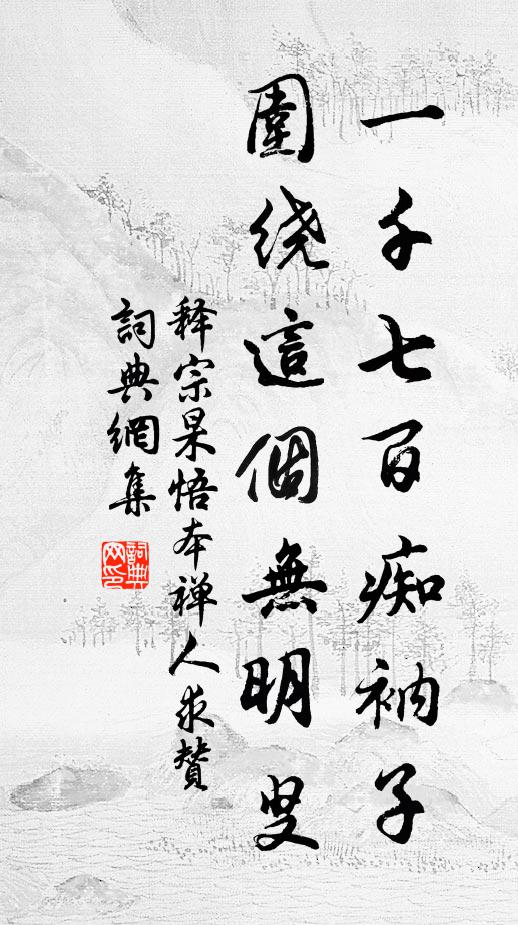 一千七百痴衲子
圍绕這個無明叟
释宗杲悟本禅人求赞
詞典網集
詞典网印